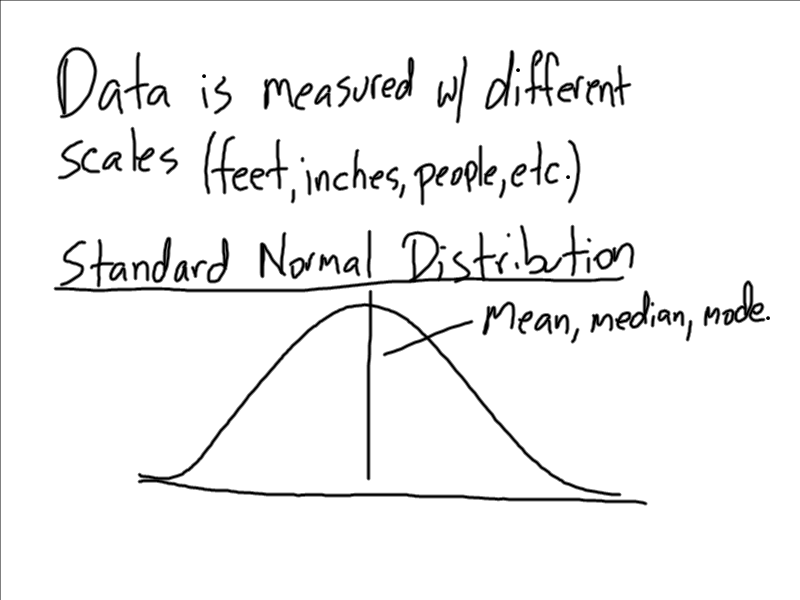 Data is measured w/ different
scales (feet, inches, people, etc.)
Standard Normal Distribution
Mean, median, mode.